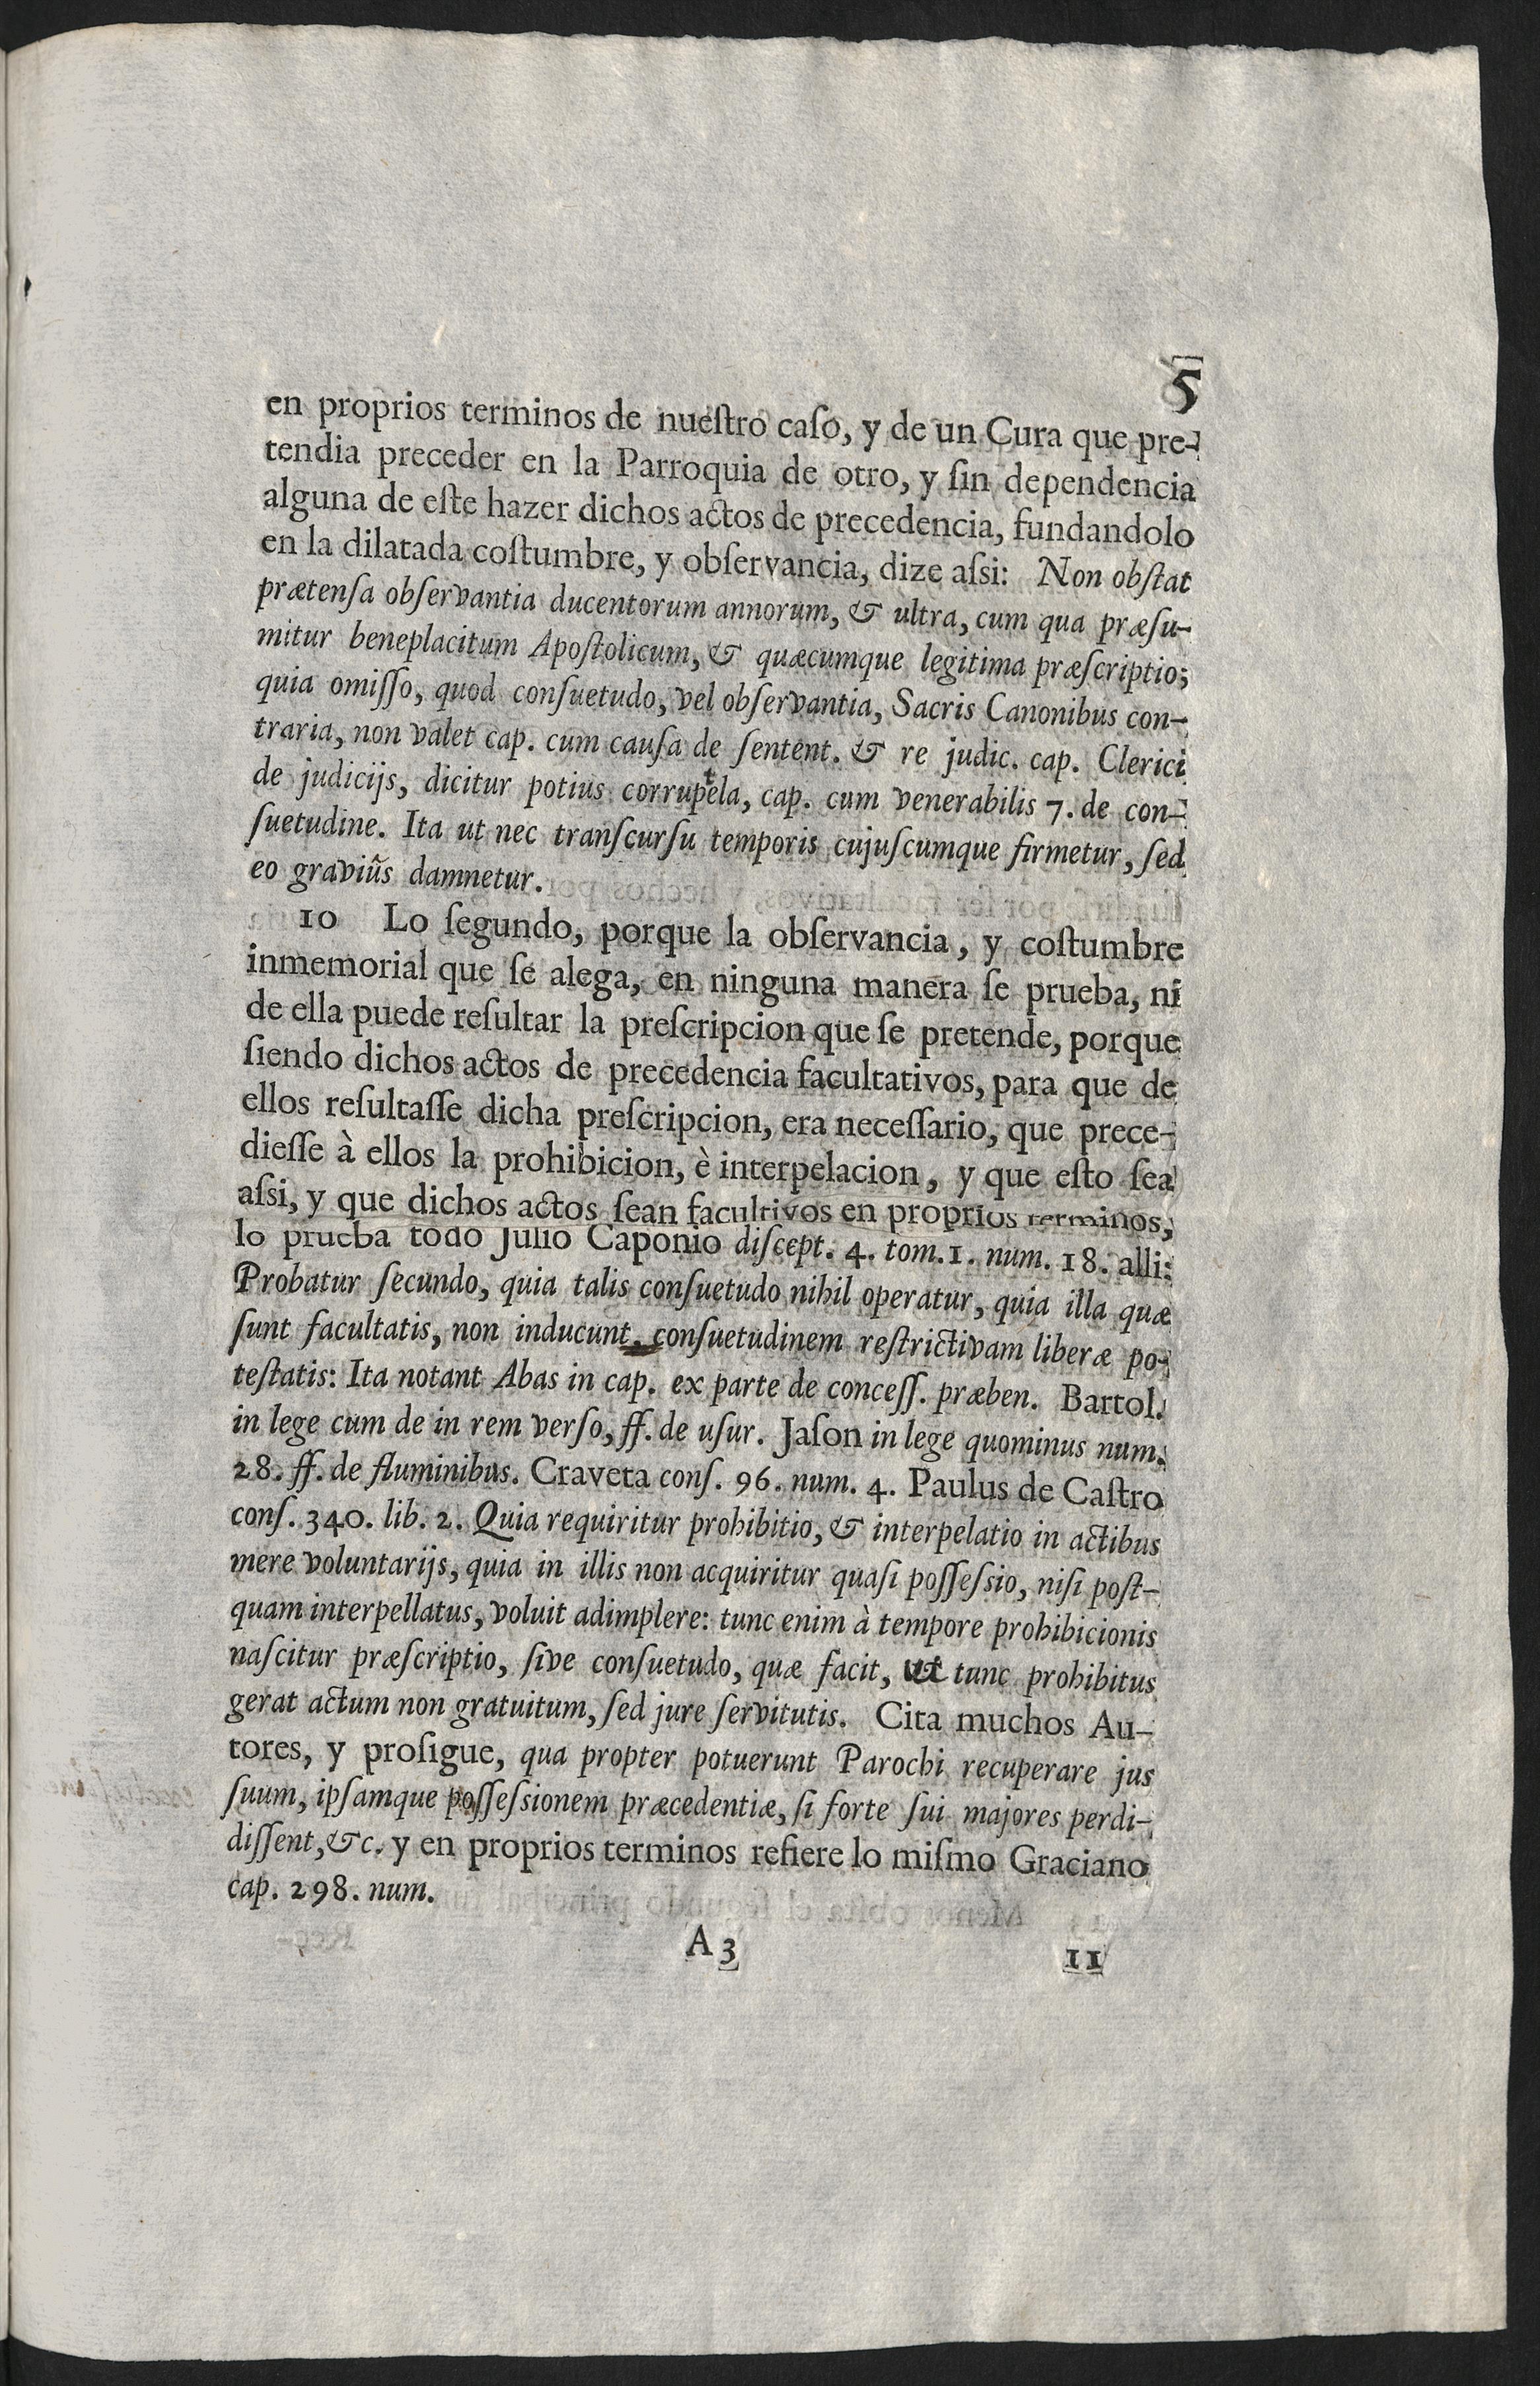 5
en proprios terminos de nueſtro caſo, y de un Cura que pre-
tendia preceder en la Parroquia de otro, y ſin dependencia
alguna de eſte hazer dichos actos de precedencia, fundandolo
en la dilatada coſtumbre, y obſervancia, dize aſsi: Non obſtat
prætenſa obſervantia ducentorum annorum, & ultra, cum qua præſu-
mitur beneplacitum Apoſtolicum, & quæcumque legitima præſcriptio;
quia omiſſo, quod conſuetudo, vel obſervantia, Sacris Canonibus con-
traria, non valet cap. cum cauſa de ſentent. & re judic. cap. Clerici
de judicijs, dicitur potius corruptela, cap. cum venerabilis 7. de con-
ſuetudine. Ita ut nec tranſcurſu temporis cujuſcumque firmetur, ſed
eo graviûs damnetur.
10 Lo ſegundo, porque la obſervancia, y coſtumbre
inmemorial que ſe alega, en ninguna manera ſe prueba, ni
de ella puede reſultar la preſcripcion que ſe pretende, porque
ſiendo dichos actos de precedencia facultativos, para que de
ellos reſultaſſe dicha preſcripcion, era neceſſario, que prece-
dieſſe à ellos la prohibicion, è interpelacion, y que eſto ſea
aſsi, y que dichos actos ſean facultivos en proprios terminos,
lo prueba todo Julio Caponio diſcept. 4. tom. 1. num. 18. alli:
Probatur ſecundo, quia talis conſuetudo nihil operatur, quia illa quæ
ſunt facultatis, non inducunt, conſuetudinem reſtrictivam liberæ po-
teſtatis: Ita notant Abas in cap. ex parte de conceſſ. præben. Bartol.
in lege cum de in rem verſo, ff. de uſur. Jaſon in lege quominus num.
28. ff. de fluminibus. Craveta conſ. 96. num. 4. Paulus de Caſtro
conſ. 340. lib. 2. Quia requiritur prohibitio, & interpelatio in actibus
mere voluntarijs, quia in illis non acquiritur quaſi poſſeſsio, niſi poſt-
quam interpellatus, voluit adimplere: tunc enim à tempore prohibicionis
naſcitur præſcriptio, ſive conſuetudo, quæ facit, ut tunc prohibitus
gerat actum non gratuitum, ſed jure ſervitutis. Cita muchos Au-
tores, y proſigue, qua propter potuerunt Parochi recuperare jus
ſuum, ipſamque poſſeſsionem præcedentiæ, ſi forte ſui majores perdi-
diſſent, &c. y en proprios terminos refiere lo miſmo Graciano
cap. 298. num.
A 3
11